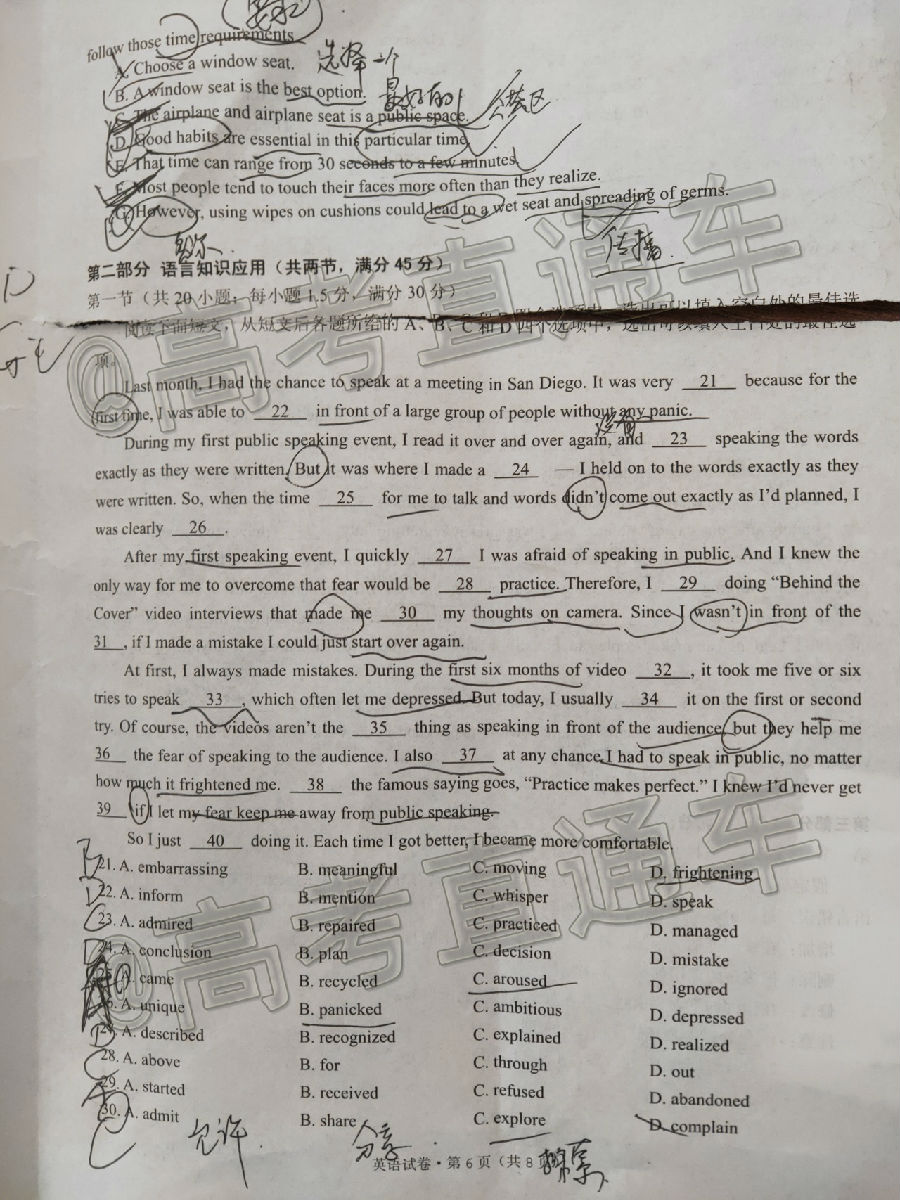 follow those time requirements.
A. Choose a window seat. 选择一个
B. A window seat is the best option. 最好的
C. The airplane and airplane seat is a public space. 公共区
D. Good habits are essential in this particular time.
E. That time can range from 30 seconds to a few minutes.
F. Most people tend to touch their faces more often than they realize.
G. However, using wipes on cushions could lead to a wet seat and spreading of germs.
传播
第二部分 语言知识应用（共两节，满分 45 分）
第一节（共 20 小题；每小题 1.5 分，满分 30 分）
阅读下面短文，从短文后各题所给的 A、B、C 和 D 四个选项中，选出可以填入空白处的最佳选
项。
Last month, I had the chance to speak at a meeting in San Diego. It was very 21 because for the
first time, I was able to 22 in front of a large group of people without any panic.
During my first public speaking event, I read it over and over again, and 23 speaking the words
exactly as they were written. But it was where I made a 24 — I held on to the words exactly as they
were written. So, when the time 25 for me to talk and words didn't come out exactly as I'd planned, I
was clearly 26 .
After my first speaking event, I quickly 27 I was afraid of speaking in public. And I knew the
only way for me to overcome that fear would be 28 practice. Therefore, I 29 doing "Behind the
Cover" video interviews that made me 30 my thoughts on camera. Since I wasn't in front of the
31 , if I made a mistake I could just start over again.
At first, I always made mistakes. During the first six months of video 32 , it took me five or six
tries to speak 33 , which often let me depressed. But today, I usually 34 it on the first or second
try. Of course, the videos aren't the 35 thing as speaking in front of the audience, but they help me
36 the fear of speaking to the audience. I also 37 at any chance I had to speak in public, no matter
how much it frightened me. 38 the famous saying goes, "Practice makes perfect." I knew I'd never get
39 if I let my fear keep me away from public speaking.
So I just 40 doing it. Each time I got better, I became more comfortable.
21. A. embarrassing B. meaningful C. moving D. frightening
22. A. inform B. mention C. whisper D. speak
23. A. admired B. repaired C. practiced D. managed
24. A. conclusion B. plan C. decision D. mistake
A. came B. recycled C. aroused D. ignored
A. unique B. panicked C. ambitious D. depressed
A. described B. recognized C. explained D. realized
28. A. above B. for C. through D. out
29. A. started B. received C. refused D. abandoned
30. A. admit B. share C. explore D. complain
允许 分享 探索
英语试卷·第 6 页（共 8 页
@高考直通车
@高考直通车